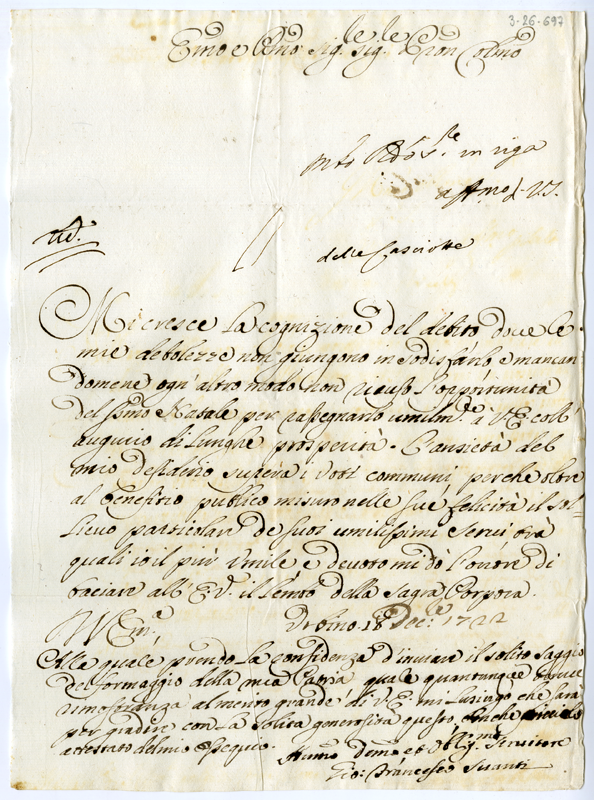 3-26-697
Emo e Rmo Sig.re Sig.re e Pron Colmo
in riga
delle Casciotte
Mi cresce la cognizione del debito doue le
mie debolezze non giungono in sodisfarlo, e mancan
domene ogn'altro modo non ricuso l'opportunità
del Ssmo Natale per rassegnarlo umilm.te a V.E. coll'
augurio di lunghe prosperità. L'ansietà del
mio desiderio supera i voti communi, perche oltre
al benefitio publico misuro nelle sue felicità il sol-
lieuo particolare de suoi umilissimi serui trà
quali io il più umile e deuoto mi dò l'onore di
baciare all'E.V. il lembo della Sagra Porpora.
Di V. Em.a
Urbino 18 Dec.le 1722
Alla quale prendo la confidenza d'inuiare il solito saggio
del formaggio della mia Patria quale quantunque breue
rimostranza al merito grande di V.E. mi lusingo che sarà
per gradire con la solita generosità questo benche piccolo
attestato del mio ossequio.
Humo Deumo et Obligmo Seruitore
Gio: Francesco